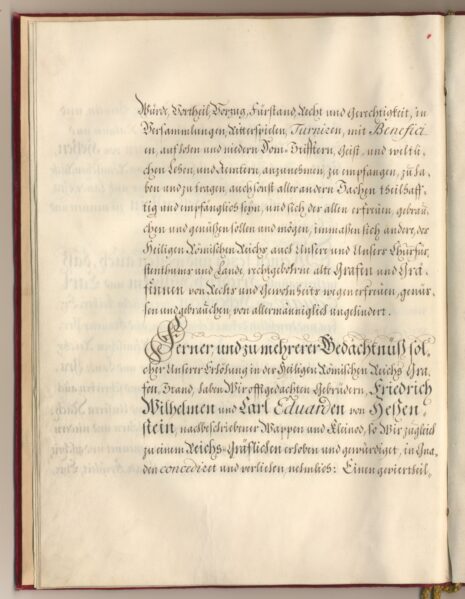 Würde, Vortheil, Vorzug, Fürstand, Recht und Gerechtigkeit, in
Versammlungen, Ritterspielen, Turnieren, mit Benefici-
en, auf hohen und niedern Dom-Stifftern, Geist- und weltli-
chen Lehen, und Aemtern, anzunehmen, zu empfangen, zu ha-
ben und zu tragen, auch sonst aller andern Sachen theilhaff-
tig und empfänglich seyn, und sich der allen erfreuen, gebrau-
chen und genüßen sollen und mögen, inmaßen sich andere, der
Heiligen Römischen Reichs, auch Unserer und Unserer Churfür-
stenthumer und Lande, rechtgebohrne alte Grafen und Grä-
finnen von Rechts und Gewohnheits wegen erfreuen, genüs-
sen und gebrauchen, von allermänniglich ungehindert.
Ferner, und zu mehrerer Gedächtnüß sol-
cher Unserer Erhöhung in der Heiligen Römischen Reichs Gra-
fen Stand, haben Wir offtgedachten Gebrüdern, Friedrich
Wilhelmen und Carl Eduarden von
nachbeschriebener Wappen und Kleinod, so Wir zugleich
zu einem Reichs-Gräflichen erhoben und gewürdiget, in Gna-
den concediret und verliehen, nehmlich: Einen geviertheil-